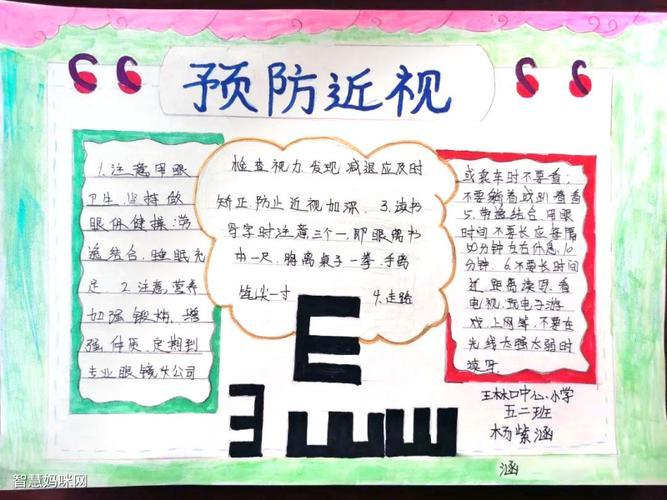 预防近视
1.注意用眼
卫生,坚持做
眼保健操,劳
逸结合,睡眠充
足 2.注意,营养
加强锻炼,增
强,体质,定期到
专业眼镜公司
检查视力.发现.减退应及时
矫正.防止近视加深. 3.读书
写字时注意三个一,即眼离书
本一尺.胸离桌子一拳.手离
笔尖一寸 4.走路
或乘车时不要看;
不要躺着或趴着看
5.劳逸结合.用眼
时间不要长应每隔
40分钟左右休息.10
分钟. 6.不要长时间
近距离读写.看
电视.玩电子游
戏.上网等.不要在
光线太强太弱时
读写
E
E E E
林口中心小学
五二班
杨紫涵
涵
智慧妈咪网